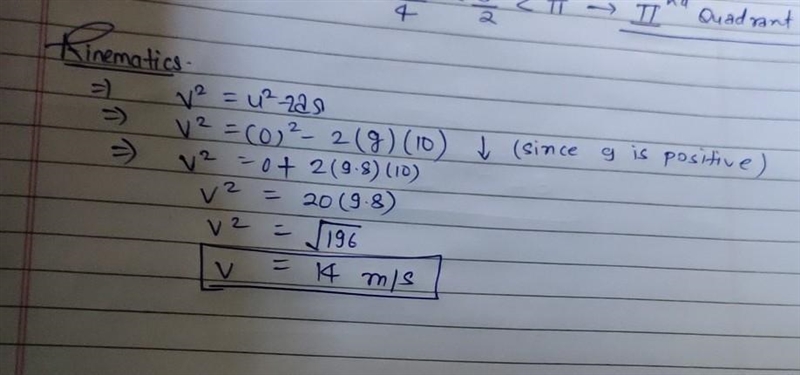 π/2 < π → IInd Quadrant
Kinematics.
⇒ v² = u² - 2as
⇒ v² = (0)² - 2(g)(10) ↓ (since g is positive)
⇒ v² = 0 + 2(9.8)(10)
v² = 20(9.8)
v² = √196
v = 14 m/s